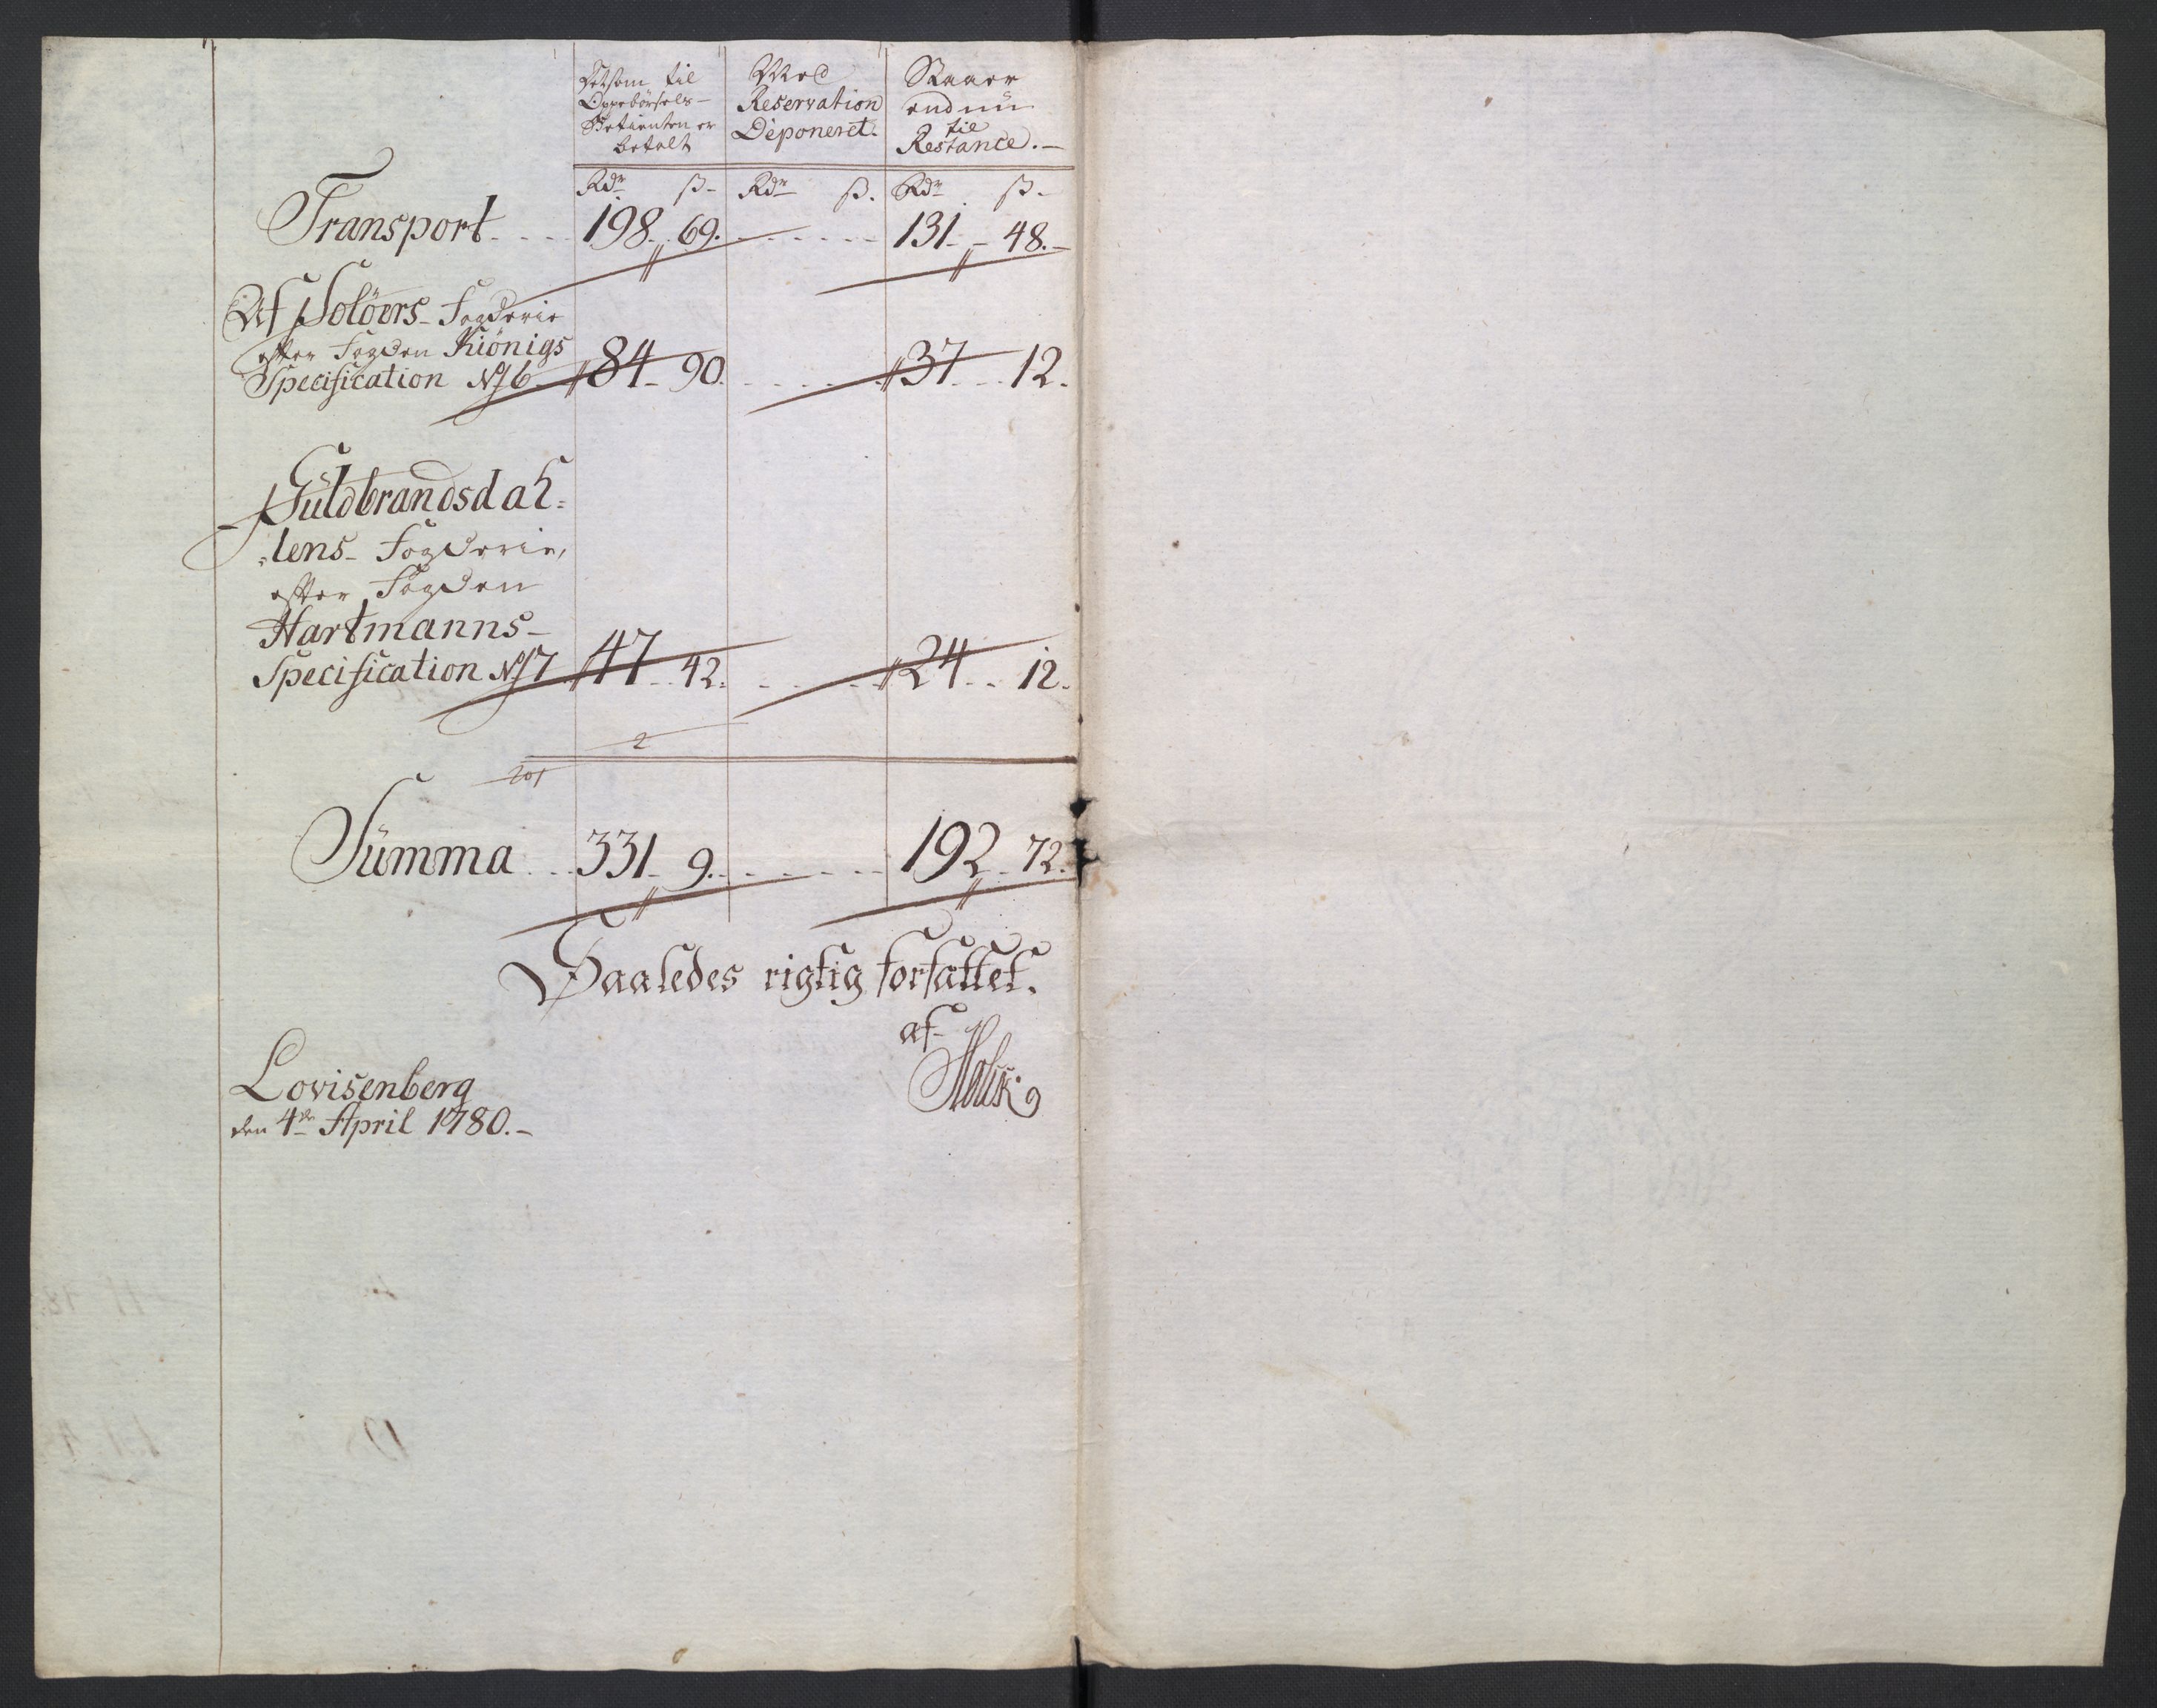 Detsom til
Oppebörsels-
Betienten er
betalt
Med
Reservation
Deponeret.
Staaer
endnu
til
Restance.-
Rdr ß- Rdr ß. Rdr ß.
Transport 198 69. 131 48.
Af Solöers Fogderie
efter Fogden Kiönigs
Specification No 6 84 90. 37 12.
Guldbrandsdah-
lens Fogderie,
efter Fogden
Hartmanns-
Specification No 7 47 42. 24 12.
2
201
Summa 331 9. 192 72.
Saaledes rigtig forfattet.
af
Lovisenberg
den 4de April 1780.-